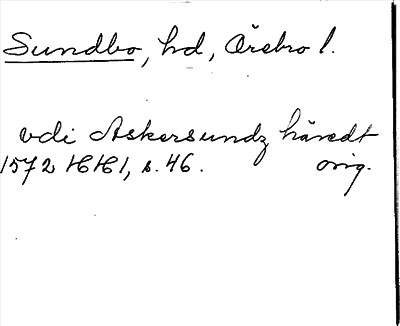 Sundbo, hd, Örebro l.
vdi Askersundz häredt
1572 HH1, s. 46. orig.